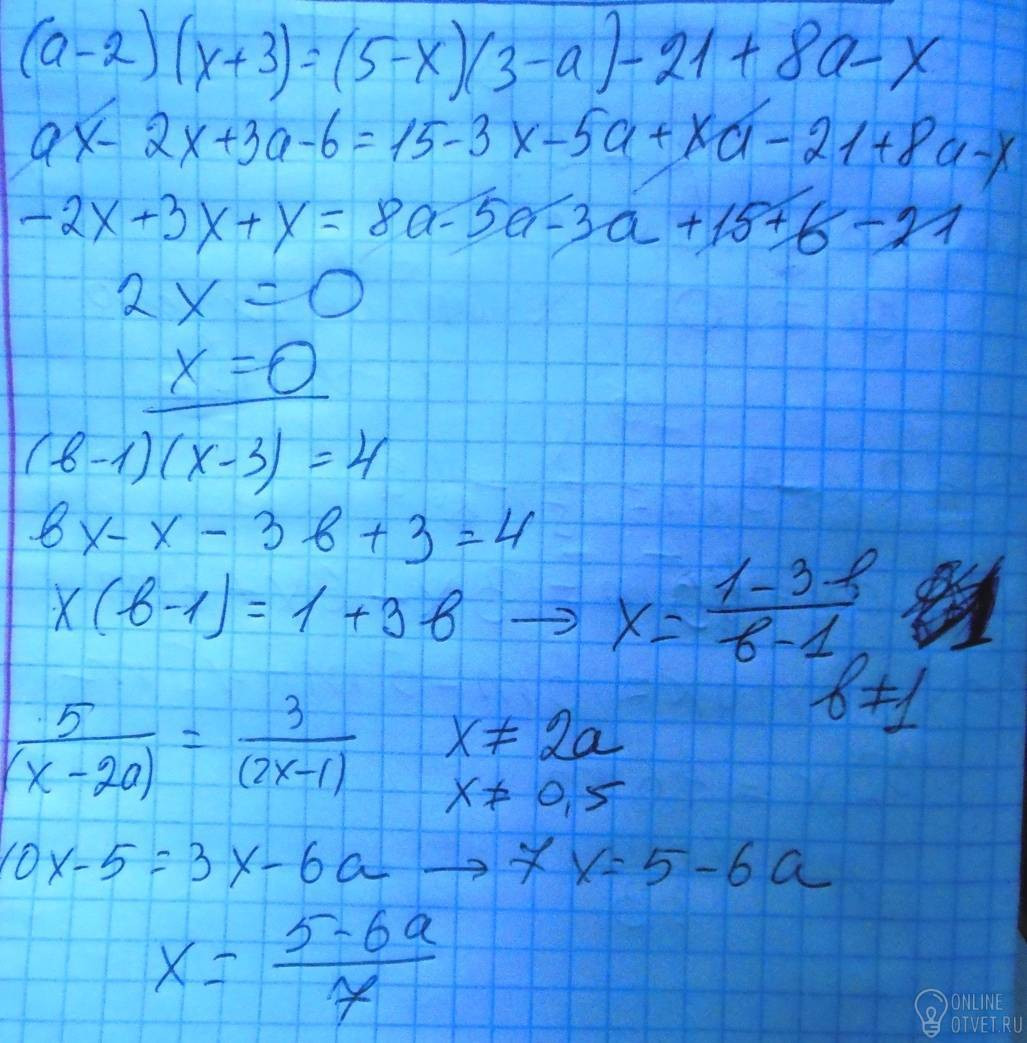 (а-2)(x+3)=(5-x)(3-а)-21+8а-x
аx-2x+3а-6=15-3x-5а+xа-21+8а-x
-2x+3x+x=8а-5а-3а+15+6-21
2x=0
x=0
(в-1)(x-3)=4
вx-x-3в+3=4
x(в-1)=1+3в → x=(1-3в)/(в-1)
в≠1
5/(x-2а) = 3/(2x-1) x≠2а
x≠0,5
10x-5=3x-6а → 7x=5-6а
x=(5-6а)/7
ONLINE
OTVET.RU